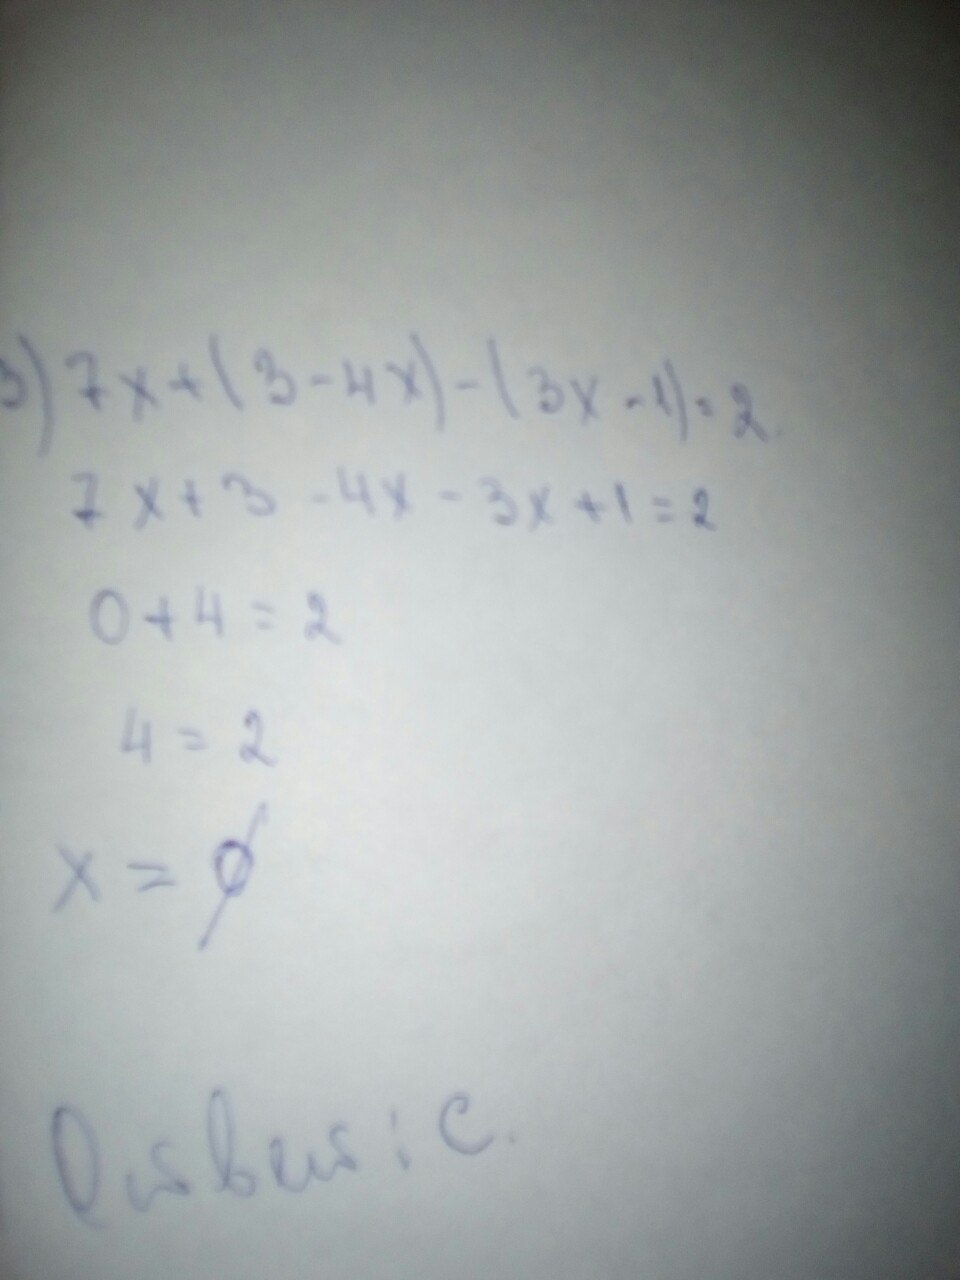 3) 7x+(3-4x)-(3x-1)=2.
7x+3-4x-3x+1=2
0+4=2
4=2
x=∅
Ответ: C.